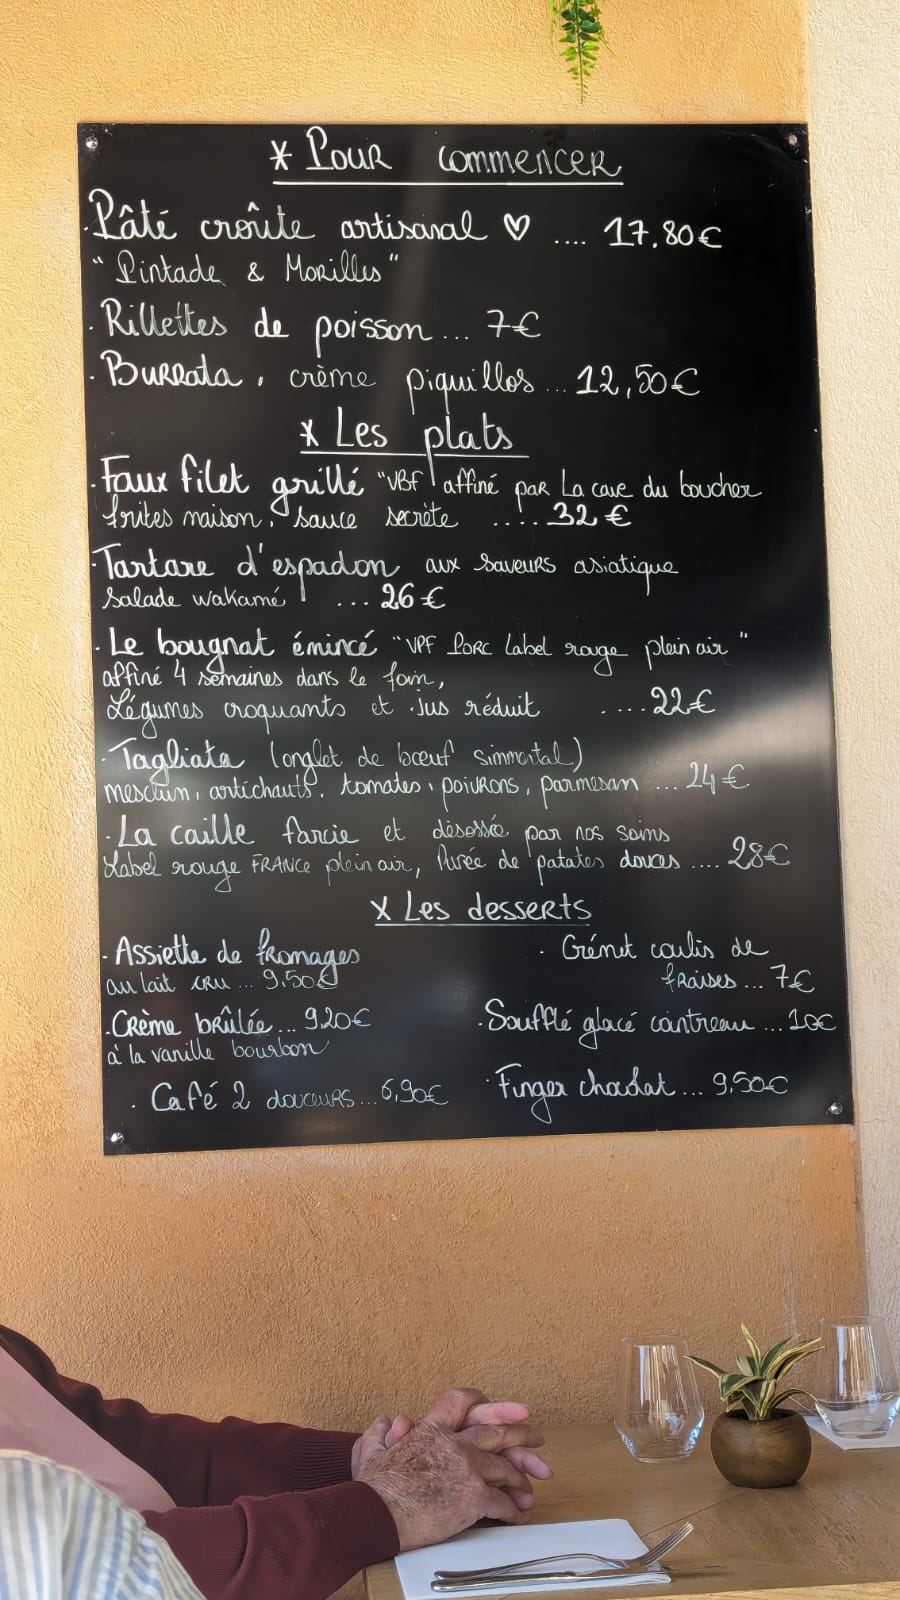 * Pour commencer
. Pâté croûte artisanal ♡ .... 17,80€
" Pintade & Morilles "
. Rillettes de poisson ... 7€
. Burrata, crème piquillos ... 12,50€
* Les plats
. Faux filet grillé "VBF" affiné par La cave du boucher
frites maison, sauce secrète .... 32€
. Tartare d'espadon aux saveurs asiatique
salade wakamé ... 26€
. Le bougnat émincé "VPF Porc Label rouge plein air"
affiné 4 semaines dans le foin,
Légumes croquants et jus réduit .... 22€
. Tagliata (onglet de bœuf simmental)
mesclun, artichauts, tomates, poivrons, parmesan ... 24€
. La caille farcie et désossée par nos soins
Label rouge FRANCE plein air, Purée de patates douces .... 28€
x Les desserts
. Assiette de fromages
au lait cru ... 9,50€
. Crémet coulis de
fraises ... 7€
. Crème brûlée ... 9,20€
à la vanille bourbon
. Soufflé glacé cointreau ... 10€
. Café 2 douceurs ... 6,90€
. Finger chocolat ... 9,50€